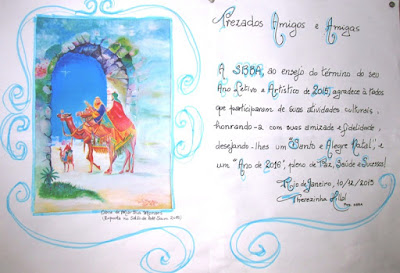 Prezados Amigos e Amigas
A SBBA, ao ensejo do término do seu
Ano Letivo e Artístico de 2015, agradece a todos
que participaram de suas atividades culturais,
honrando-a com suas amizade e fidelidade,
desejando-lhes um "Santo e Alegre Natal", e
um "Ano de 2016", pleno de Paz, Saúde e Sucesso!
Rio de Janeiro, 10/12/2015
Therezinha